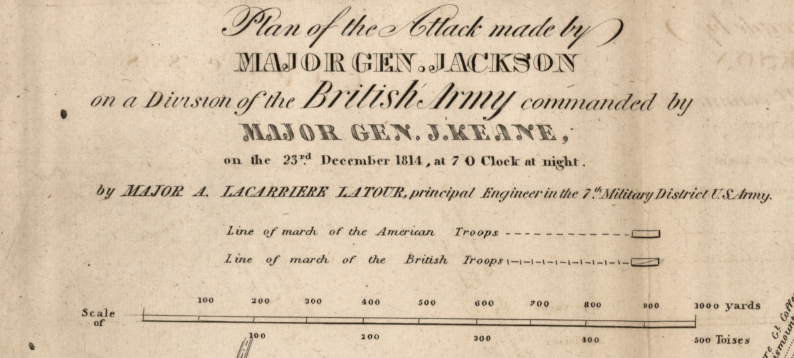 Plan of the Attack made by
MAJOR GEN. JACKSON
on a Division of the British Army commanded by
MAJOR GEN. J. KEANE,
on the 23rd. December 1814, at 7 O Clock at night.
by MAJOR A. LACARRIERE LATOUR, principal Engineer in the 7th. Military District U.S. Army.
Line of march of the American Troops
Line of march of the British Troops
100 200 300 400 500 600 700 800 900 1000 yards
Scale of
100 200 300 400 500 Toises